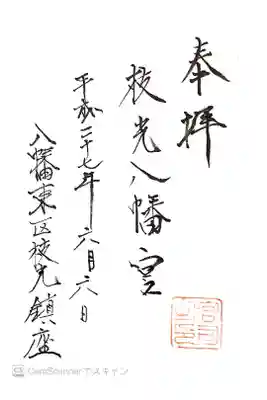 奉拝
枝光八幡宮
平成二十七年六月六日
八幡東区枝光鎮座
CamScannerでスキャン